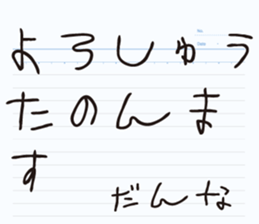 よろしゅう
たのんま
す
だんな